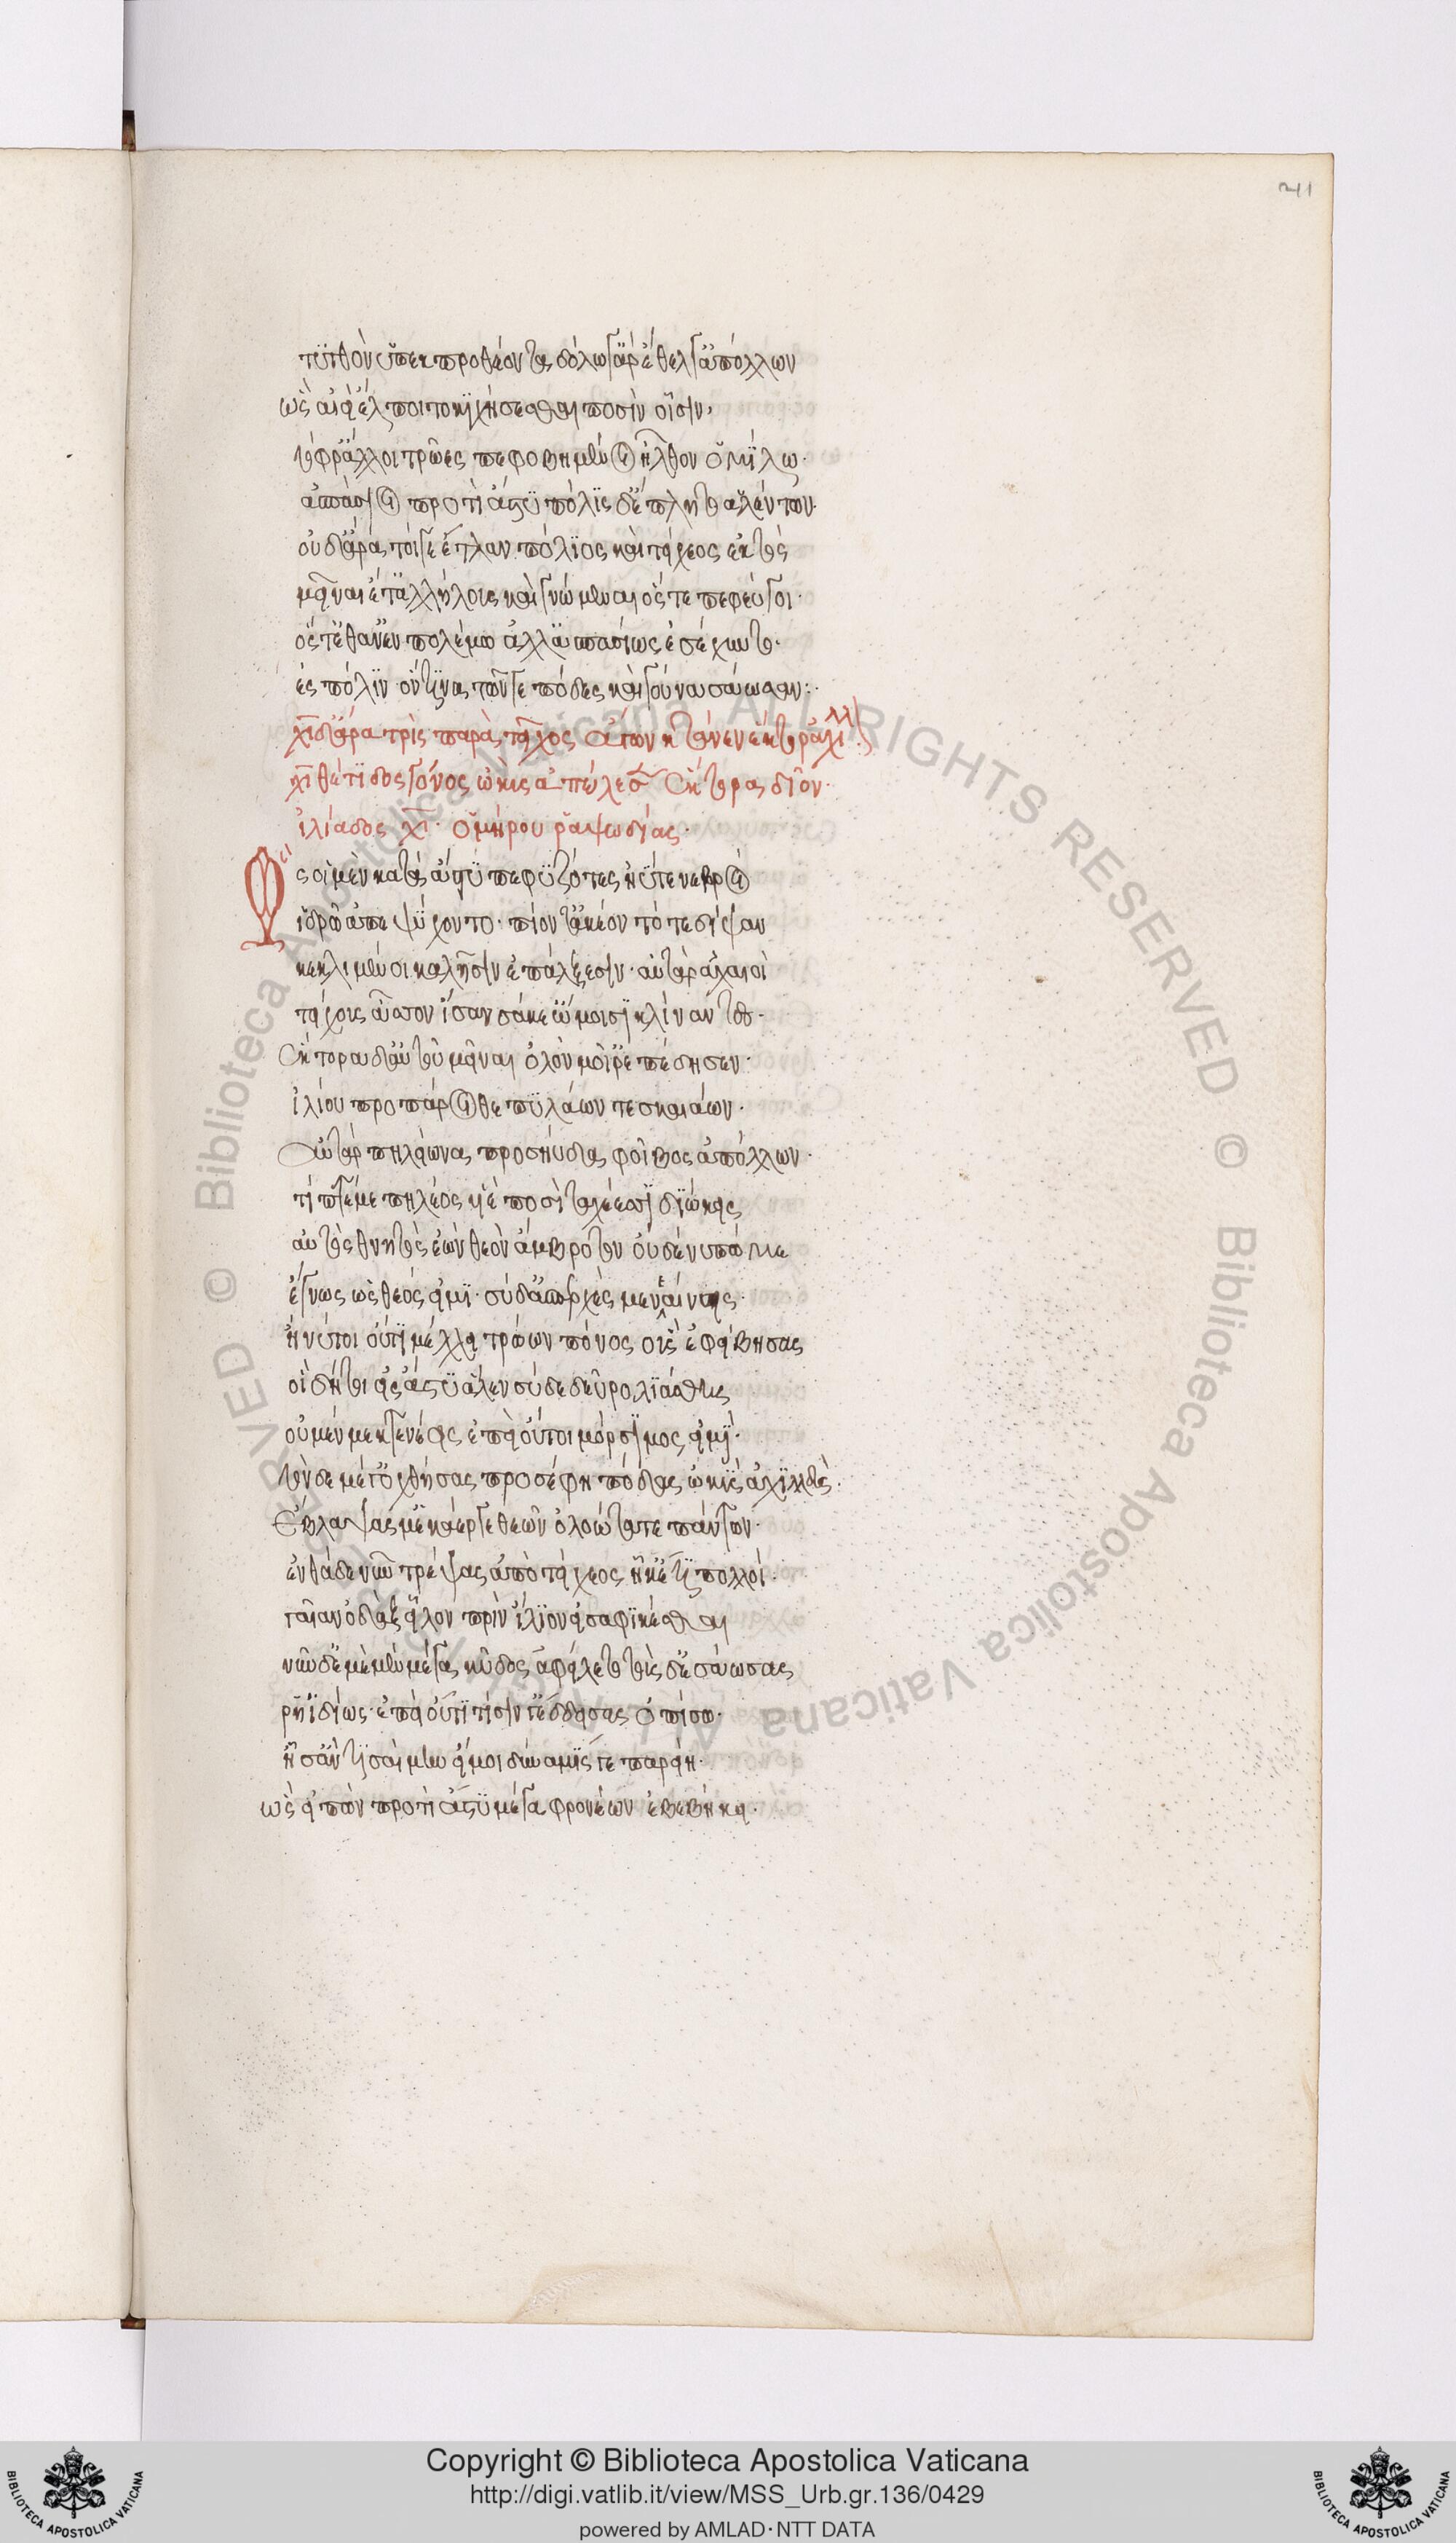 211
τυτθὸν ὑπεκπροθέοντα δόλω γὰρ ἔθελγ' ἀπόλλων
ὡς αἰεὶ ἔλποιτο κιχήσεσθαι ποσὶν οἷσιν,
τόφρ' ἄλλοι τρῶες πεφοβημένοι ἦλθον ὁμίλω.
ἀσπάσιοι προτὶ ἄστυ πόλις δ' ἔπλητο ἀλέντων.
οὐδ' ἄρα τοίγ' ἔτλαν πόλιος καὶ τείχεος ἐκτὸς
μεῖναι ἔτ' ἀλλήλους καὶ γνώμεναι ὅς τε πεφεύγοι.
ὅς τ' ἔθαν' ἐν πολέμω ἀλλ' ἀσπασίως ἐσέχυντο.
ἐς πόλιν ὅντινα τῶνγε πόδες καὶ γούνα σάωσαν:
χῖ δ' ἄρα τρὶς παρὰ τεῖχος ἄγων κτάνεν ἕκτορ' ἀχιλλ
χῖ θέτιδος γόνος ὠκὺς ἀπώλεσεν ἕκτορα δῖον.
ἰλιάδος χῖ. ὁμήρου ῥαψωδίας.
Ὣς οἱ μὲν κατὰ ἄστυ πεφυζότες ἠΰτε νεβροὶ
ἱδρῶ ἀπεψύχοντο. πίον τ' ἀκέοντό τε δίψαν
κεκλιμένοι καλῆσιν ἐπάλξεσιν. αὐτὰρ ἀχαιοὶ
τείχεος ἆσσον ἴσαν σάκε' ὤμοισι κλίναντες.
Ἕκτορα δ' αὐτοῦ μεῖναι ὀλοὴ μοῖρ' ἐπέδησεν.
ἰλίου προπάροιθε πυλάων τε σκαιάων.
Αὐτὰρ πηλείωνα προσηύδα φοῖβος ἀπόλλων.
τίπτέ με πηλέος υἱὲ ποσὶ ταχέεσσι διώκεις
αὐτὸς θνητὸς ἐὼν θεὸν ἄμβροτον οὐδέ νυ πώ με
ἔγνως ὡς θεός εἰμι. σὺ δ' ἀσπερχὲς μενεαίνεις.
ἦ νύ τοι οὔτι μέλλει τρώων πόνος οὓς ἐφόβησας
οἳ δή τοι εἰς ἄστυ ἄλεν σὺ δὲ δεῦρο λιάσθης
οὐ μέν με κτενέεις ἐπεὶ οὔτοι μόρσιμος εἰμί.
τὸν δὲ μέγ' ὀχθήσας προσέφη πόδας ὠκὺς ἀχιλλεὺς.
Ἔβλαψάς μ' ἑκάεργε θεῶν ὀλοώτατε πάντων.
ἐνθάδε νῦν τρέψας ἀπὸ τείχεος ἦ κ' ἔτι πολλοὶ.
γαῖαν ὀδὰξ εἷλον πρὶν ἴλιον εἰσαφικέσθαι
νῦν δ' ἐμὲ μὲν μέγα κῦδος ἀφείλεο τοὺς δ' ἐσάωσας
ῥηϊδίως. ἐπεὶ οὔτι τίσιν γ' ἔδδεισας ὀπίσω.
ἦ σ' ἂν τισαίμην εἴ μοι δύναμίς γε παρείη.
ὣς εἰπὼν προτὶ ἄστυ μέγα φρονέων ἐβεβήκει.
Copyright © Biblioteca Apostolica Vaticana
http://digi.vatlib.it/view/MSS_Urb.gr.136/0429
powered by AMLAD·NTT DATA
BIBLIOTECA APOSTOLICA VATICANA
BIBLIOTECA APOSTOLICA VATICANA
© Biblioteca Apostolica Vaticana ALL RIGHTS RESERVED © Biblioteca Apostolica Vaticana ALL RIGHTS RESERVED